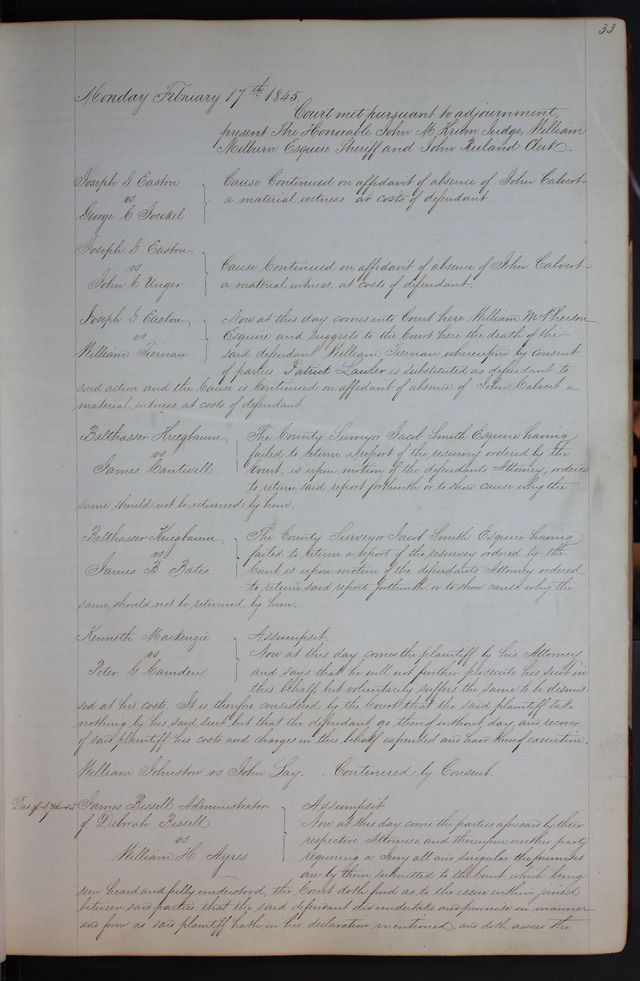 33
Monday February 17th 1845.
Court met pursuant to adjournment,
present The Honorable John M Krum Judge, William
Milburn Esquire Sheriff and John Ruland Clerk.
Joseph G Easton
vs
George C
Cause Continued on affidavit of absence of John Calvert
a material witness at costs of defendant
Joseph G Easton
vs
John C Unger
Cause Continued on affidavit of absence of John Calvert
a material witness, at costs of defendant.
Joseph G Easton
vs
William Tiernan
Now at this day comes into Court here William McPherson
Esquire and suggests to the Court here the death of the
said defendant William Tiernan, whereupon by consent
of parties Patrick Lawler is substituted as defendant to
said action and the Cause is Continued on affidavit of absence of John Calvert a
material witness, at costs of defendant
Balthasser Kriegbaum
vs
James Cantwell
The County Surveyor Jacob Smith Esquire having
failed to return a report of the resurvey ordered by the
Court, is upon motion of the defendants Attorney, ordered
to return said report forthwith or to show cause why the
same should not be returned by him.
Balthasser Kriegbaum
vs
James B Bates
The County Surveyor Jacob Smith Esquire having
failed to return a report of the resurvey ordered by the
Court is upon motion of the defendants Attorney ordered
to return said report forthwith, or to show cause why the
same, should not be returned by him.
Kenneth Mackenzie
vs
Peter G Camden
Assumpsit
Now at this day comes the plaintiff by his Attorney
and says that he will not further prosecute his suit in
this behalf but voluntarily suffers the same to be dismis
sed at his costs. It is therefore considered by the Court that the said plaintiff take
nothing by his said suit, but that the defendant go thereof without day, and recover
of said plaintiff his costs and charges in this behalf expended and have thereof execution.
William Johnston vs John Lay. . . Continued by Consent.
James Bissell Administrator
of Deborah Bissell
vs
William H. Ayres
Assumpsit
Now at this day come the parties aforesaid by their
respective Attornies, and thereupon neither party
requiring a Jury all and singular the premises
are by them submitted to the Court, which being
seen heard and fully understood, the Court doth find as to the issue within joined
between said parties, that the said defendant did undertake and promise in manner
and form as said plaintiff hath in his declaration mentioned, and doth assess the